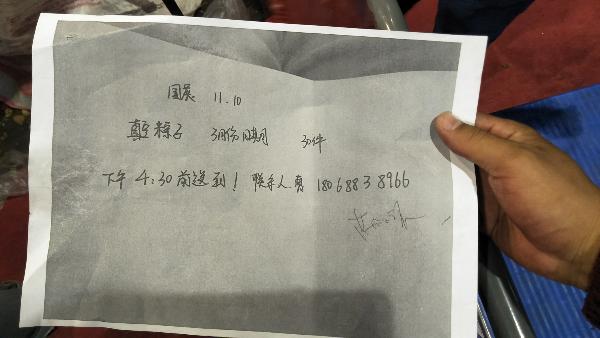 国展 11.10
真空粽子 3月份日期 30件
下午 4:30前送到! 联系人 18068838966